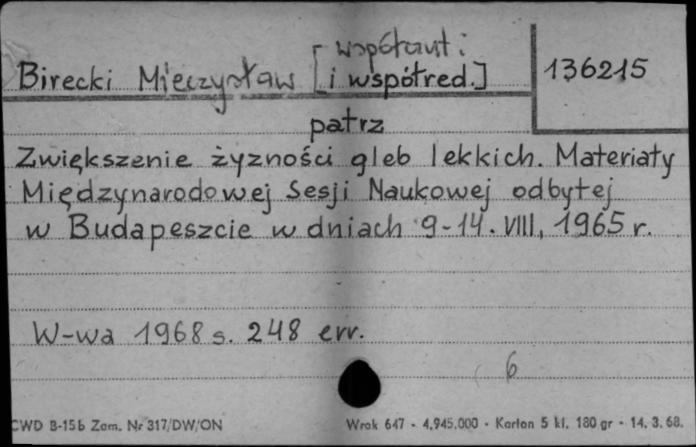 współaut. i
Birecki Mieczysław [i współred.] 136215
patrz
Zwiększenie żyzności gleb lekkich. Materiały
Międzynarodowej Sesji Naukowej odbytej
w Budapeszcie w dniach 9-14. VIII, 1965 r.
W-wa 1968 s. 248 err.
6
CWD B-15b Zam. Nr 317/DW/ON Wrok 647 - 4.945.000 - Karton 5 kl. 180 gr - 14. 3. 68.